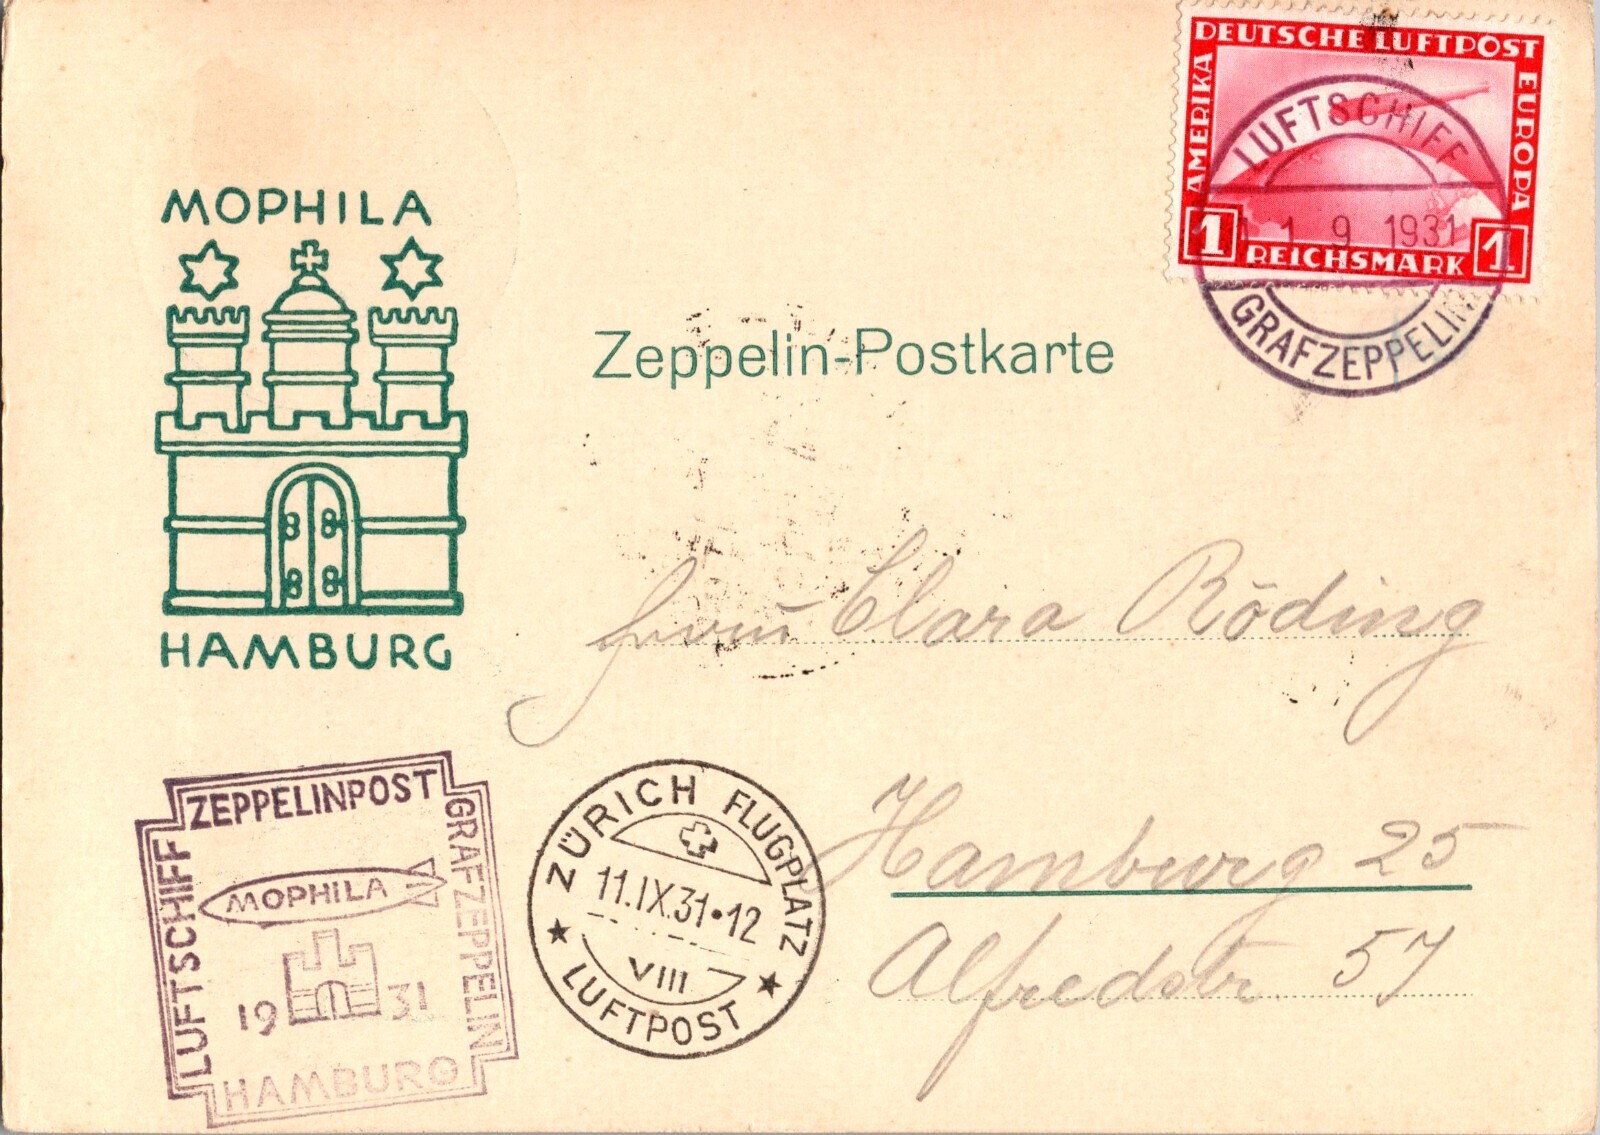 DEUTSCHE LUFTPOST
AMERIKA
EUROPA
1 REICHSMARK 1
LUFTSCHIFF
1 9 1931
GRAF ZEPPELIN
MOPHILA
HAMBURG
Zeppelin-Postkarte
Frau Clara Röding
Hamburg 25
Alfredstr. 57
ZEPPELINPOST
LUFTSCHIFF
GRAF ZEPPELIN
MOPHILA
19 31
HAMBURG
ZÜRICH FLUGPLATZ
11.IX.31•12
VIII
LUFTPOST